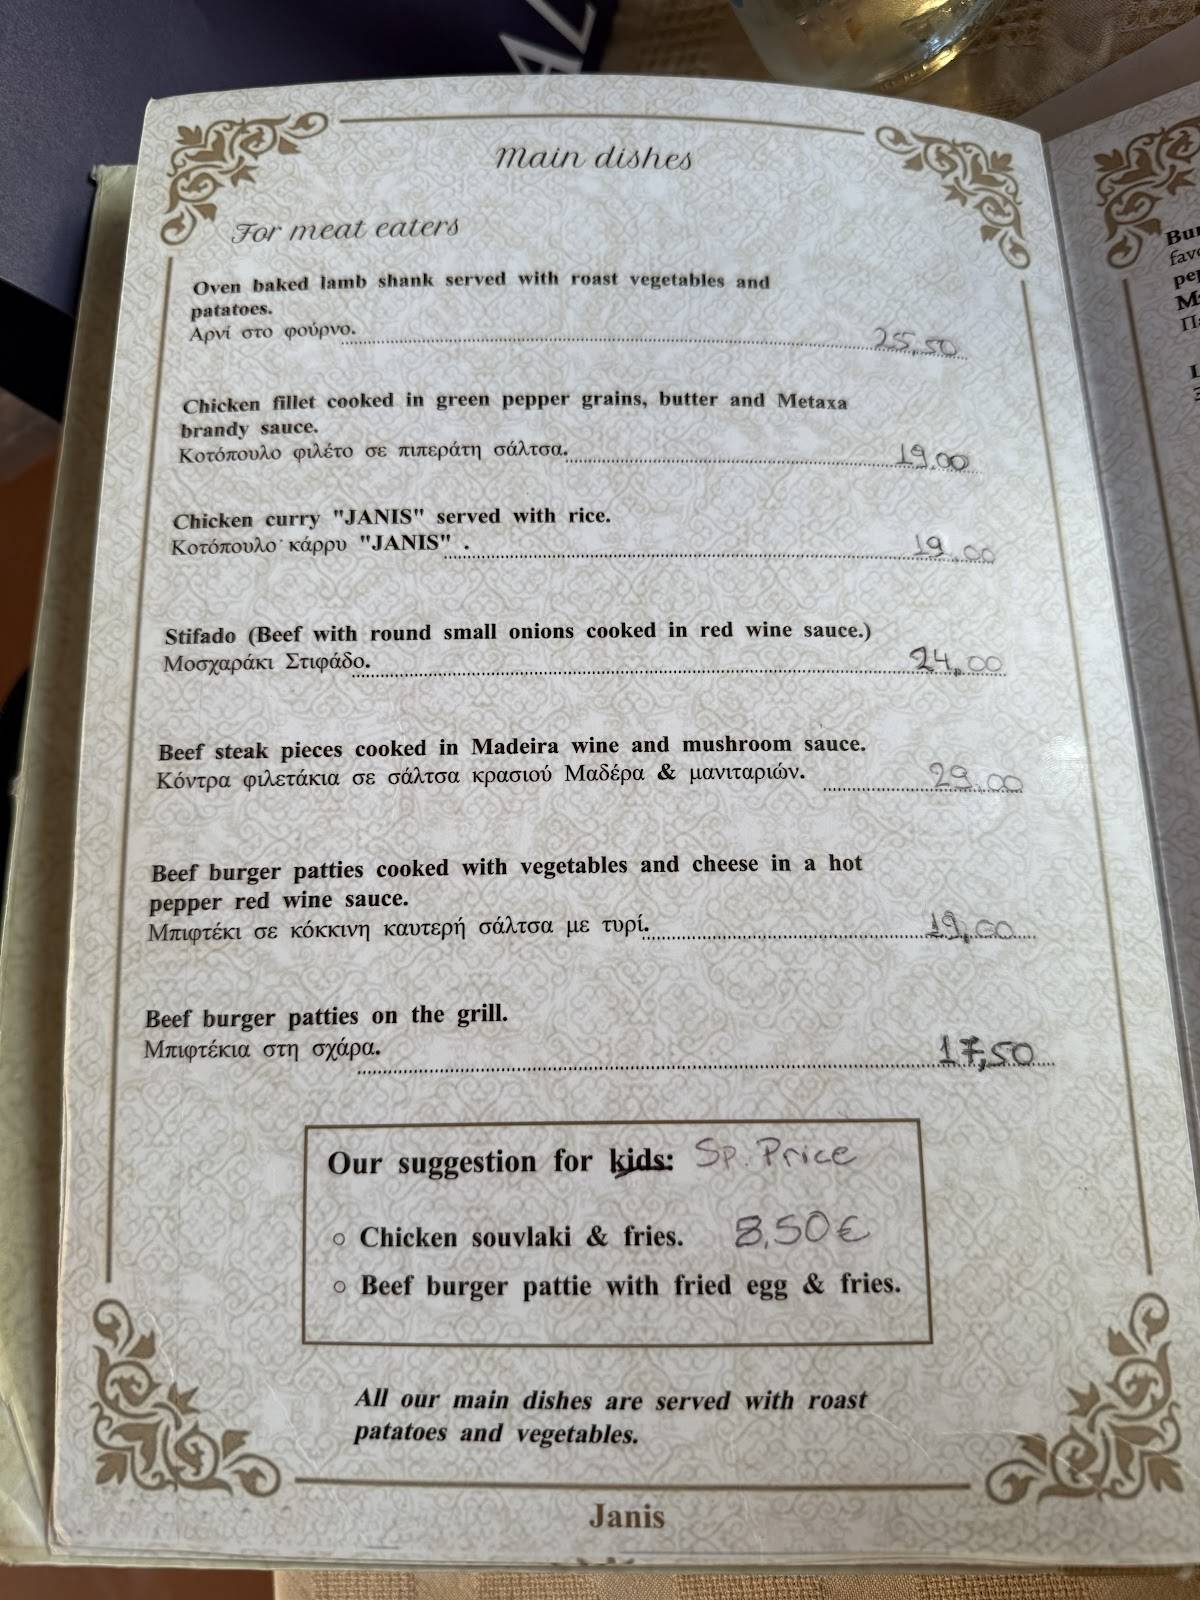 AL
Main dishes
For meat eaters
Oven baked lamb shank served with roast vegetables and
patatoes.
Αρνί στο φούρνο. 25,50
Chicken fillet cooked in green pepper grains, butter and Metaxa
brandy sauce.
Κοτόπουλο φιλέτο σε πιπεράτη σάλτσα. 19.00
Chicken curry "JANIS" served with rice.
Κοτόπουλο κάρρυ "JANIS" . 19.00
Stifado (Beef with round small onions cooked in red wine sauce.)
Μοσχαράκι Στιφάδο. 24,00
Beef steak pieces cooked in Madeira wine and mushroom sauce.
Κόντρα φιλετάκια σε σάλτσα κρασιού Μαδέρα & μανιταριών. 29.00
Beef burger patties cooked with vegetables and cheese in a hot
pepper red wine sauce.
Μπιφτέκι σε κόκκινη καυτερή σάλτσα με τυρί. 19,00
Beef burger patties on the grill.
Μπιφτέκια στη σχάρα. 17,50
Our suggestion for kids: Sp. Price
Chicken souvlaki & fries. 8,50€
Beef burger pattie with fried egg & fries.
All our main dishes are served with roast
patatoes and vegetables.
Janis